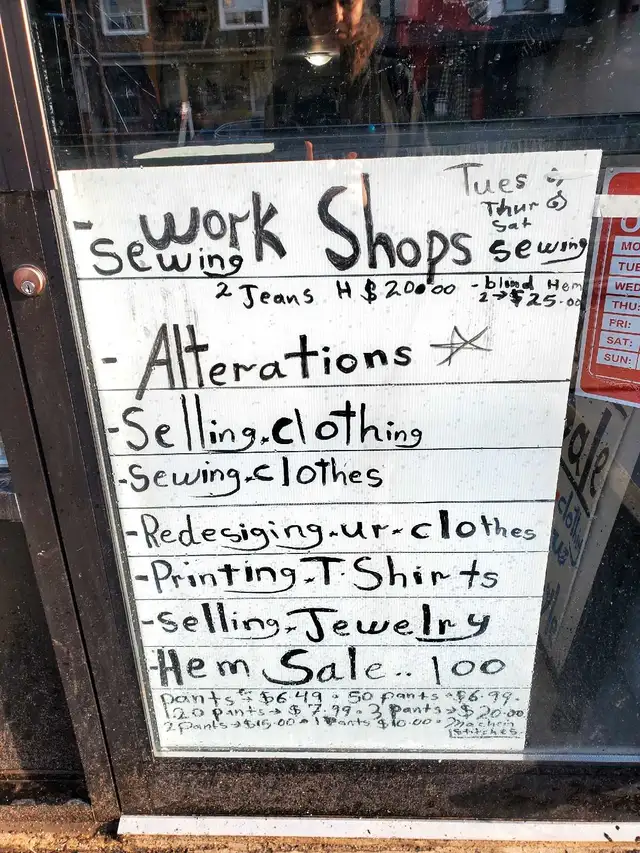 Tues
Thur
Sat
- Sewing work Shops sewing
2 Jeans H $20.00 - blind Hem
2→$25.00
- Alterations
- Selling.clothing
- Sewing.clothes
- Redesiging.ur.clothes
- Printing.T.Shirts
- selling.Jewelry
- Hem Sale.. 100
pants $6.49 • 50 pants → $6.99.
20 pants → $7.99. 3 pants → $20.00
2 pants → $15.00 • 1 pants $10.00 •
stitches
MO
TUE
WED
THU:
FRI:
SAT:
SUN:
sale
clothing